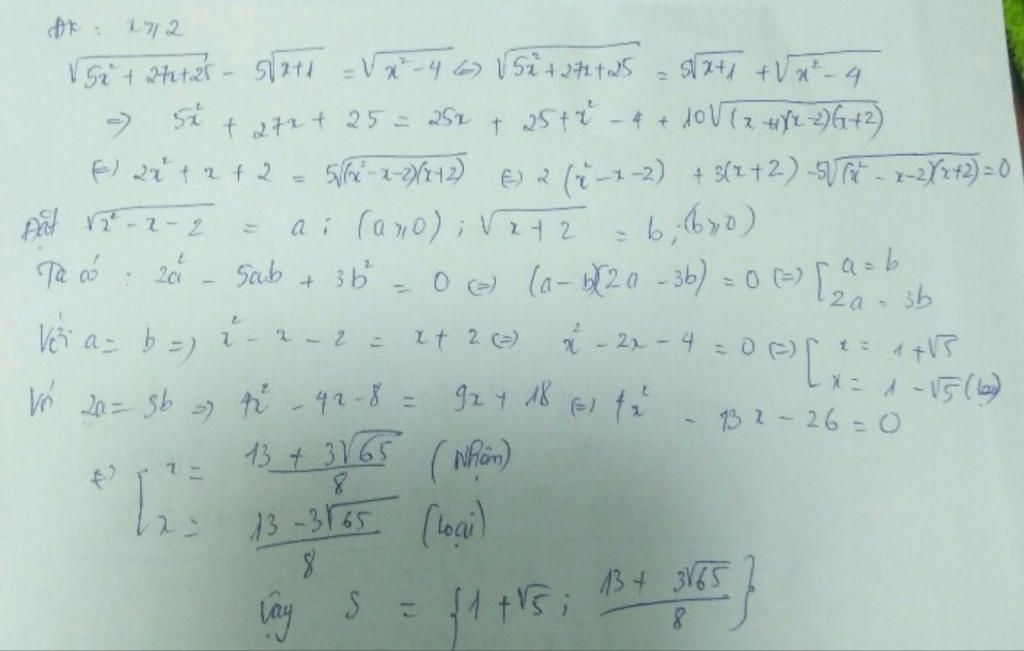 ĐK : x ⩾ 2
√(5x² + 27x + 25) - 5√(x+1) = √(x² - 4) ⇔ √(5x² + 27x + 25) = 5√(x+1) + √(x² - 4)
⇒ 5x² + 27x + 25 = 25x + 25 + x² - 4 + 10√((x+1)(x-2)(x+2))
⇔ 2x² + x + 2 = 5√((x²-x-2)(x+2)) ⇔ 2(x²-x-2) + 3(x+2) - 5√((x²-x-2)(x+2)) = 0
Đặt √(x² - x - 2) = a ; (a ⩾ 0) ; √(x+2) = b ; (b ⩾ 0)
Ta có : 2a² - 5ab + 3b² = 0 ⇔ (a-b)(2a-3b) = 0 ⇔ [ a = b
2a = 3b
Với a = b ⇒ x² - x - 2 = x + 2 ⇔ x² - 2x - 4 = 0 ⇔ [ x = 1 + √5
x = 1 - √5 (loại)
Với 2a = 3b ⇒ 4x² - 4x - 8 = 9x + 18 ⇔ 4x² - 13x - 26 = 0
⇔ [ x = (13 + 3√65)/8 (Nhận)
x = (13 - 3√65)/8 (Loại)
Vậy S = {1 + √5 ; (13 + 3√65)/8}